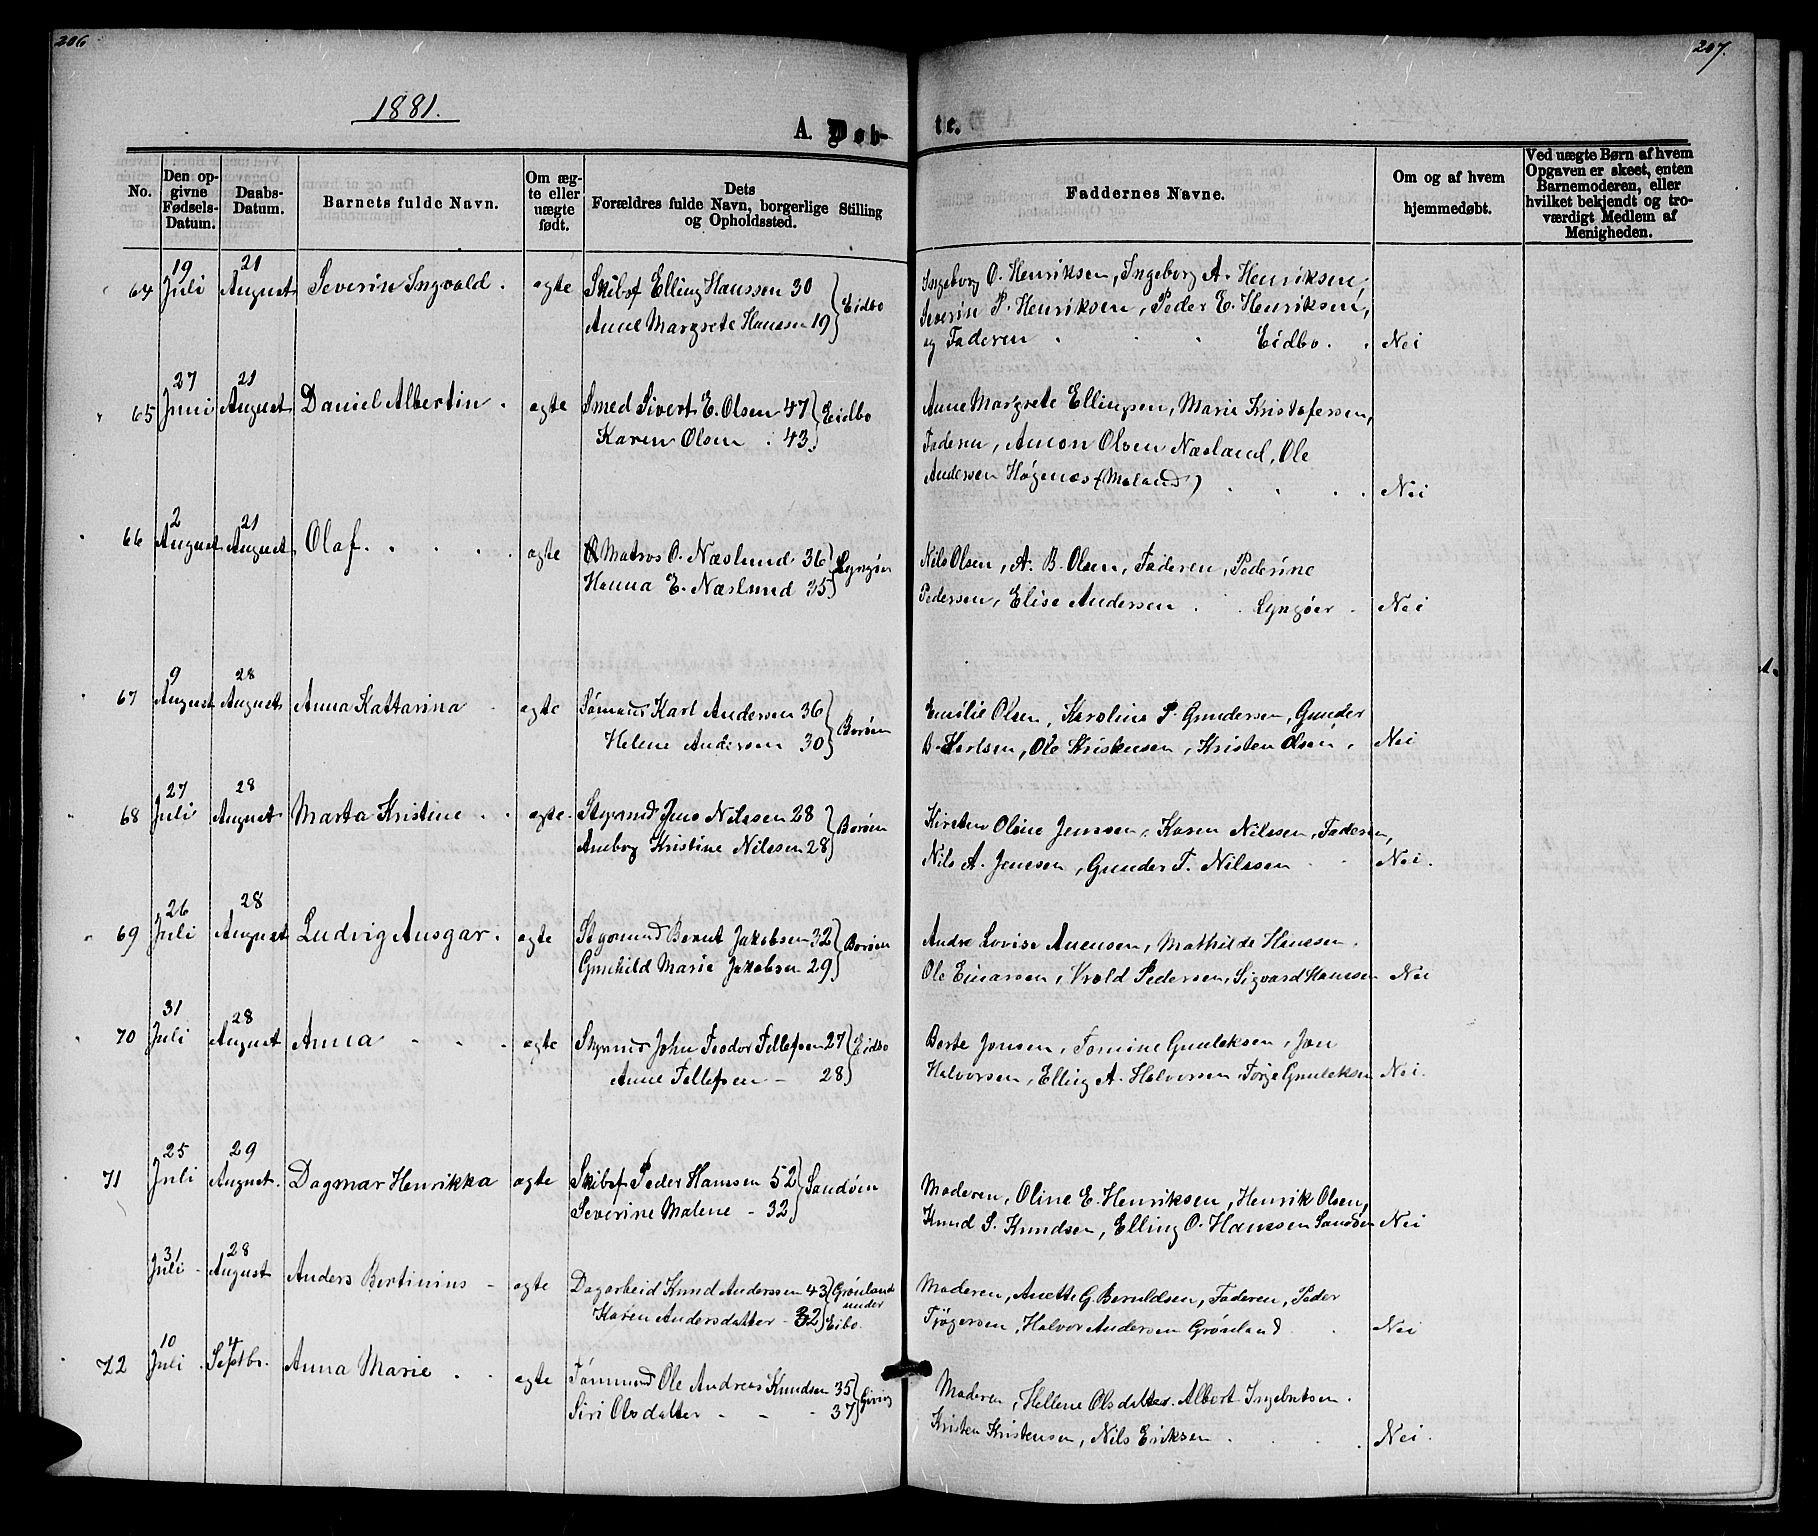 206
207.
1881.
A. Døb-
te.
No.
Den op-
givne
Fødsels-
Datum.
Daabs-
Datum.
Barnets fulde Navn.
Om æg-
te eller
uægte
født.
Dets
Forældres fulde Navn, borgerlige Stilling
og Opholdssted.
Faddernes Navne.
Om og af hvem
hjemmedøbt.
Ved uægte Børn af hvem
Opgaven er skeet, enten
Barnemoderen, eller
hvilket bekjendt og tro-
værdigt Medlem af
Menigheden.
64 19 Juli 21 August Severin Ingvald. ægte Skibsf Elling Hanssen 30
Anne Margrete Hanssen 19 } Eidbo
Ingeborg O. Henriksen, Ingeborg A. Henriksen,
Severine P. Henriksen, Peder E. Henriksen,
og Faderen Eidbo. Nei
65 27 Juni 21 August Daniel Albertin. ægte Smed Sivert E. Olsen 47
Karen Olsen 43 } Eidbo
Anne Margrete Ellingsen, Marie Kristofersen,
Faderen, Amon Olsen Næslund, Ole
Andersen Høgenæs (Moland) Nei
66 2 August 21 August Olaf. ægte Matros O. Næslund 36
Hanna E. Næslund 35 } Lyngøer
Nils Olsen, A. B. Olsen, Faderen, Pederine
Pedersen, Elise Andersen Lyngøer. Nei
67 9 August 28 August Anna Kattarina ægte Sømand Karl Andersen 36
Helene Andersen 30 } Borøen
Emilie Olsen, Karoline P. Gundersen, Gunder
B. Karlsen, Ole Kristensen, Kristen Olsen, Nei
68 27 Juli 28 August Marta Kristine ægte. Styrmd Jens Nilssen 28
Aneborg Kristine Nilssen 28 } Borøen
Kirsten Oline Jenssen, Karen Nilssen, Faderen,
Nils A. Jenssen, Gunder T. Nilssen Nei.
69 26 Juli 28 August Ludvig Ansgar. ægte Styrmand Bernt Jakobsen 32
Gunhild Marie Jakobsen 29 } Borøen
Andre Lovise Anensen, Mathilde Hanssen.
Ole Einarsen, Vrold Pedersen, Sigvard Hanssen Nei
70 31 Juli 28 August Anna ægte Styrmd John Teodor Tellefsen 27
Anne Tellefsen 28 } Eidbo
Berte Jensen, Tomine Gunleksen, Jan
Halvorsen, Elling A. Halvorsen, Torje Gunleksen Nei.
71 25 Juli 29 August. Dagmar Henrikka ægte Skibsf Peder Hanssen 52
Severine Malene - 32 } Sandøen
Moderen, Oline E. Henriksen, Henrik Olsen,
Knud S. Knudsen, Elling O. Hanssen Sandøen Nei
31 Juli 28 August Anders Bertinius - ægte Dagarbeid Knud Anderssen 43
Karen Andersdatter - 32 } Grønland under Eibo.
Moderen, Anette G. Beruldsen, Faderen, Peder
Tjøgersen, Halvor Andersen Grønland. Nei
72 10 Juli 4 Septbr. Anna Marie ægte Tømmermd Ole Andreas Knudsen 35
Siri Olsdatter - 37 } Giving
Moderen, Hellene Olsdatter. Albert Ingebretsen.
Kristen Kristensen, Nils Eriksen. Nei.